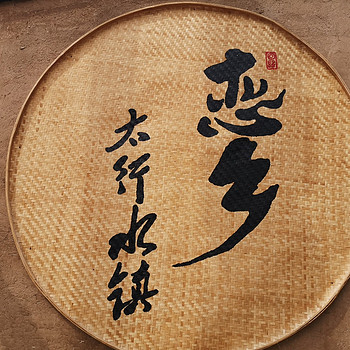 恋乡
太行水镇